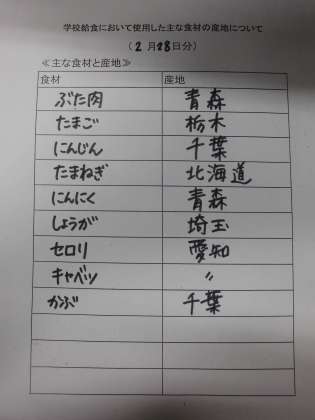 学校給食において使用した主な食材の産地について
(2月28日分)
≪主な食材と産地≫
食材 産地
ぶた肉 青森
たまご 栃木
にんじん 千葉
たまねぎ 北海道
にんにく 青森
しょうが 埼玉
セロリ 愛知
キャベツ 〃
かぶ 千葉